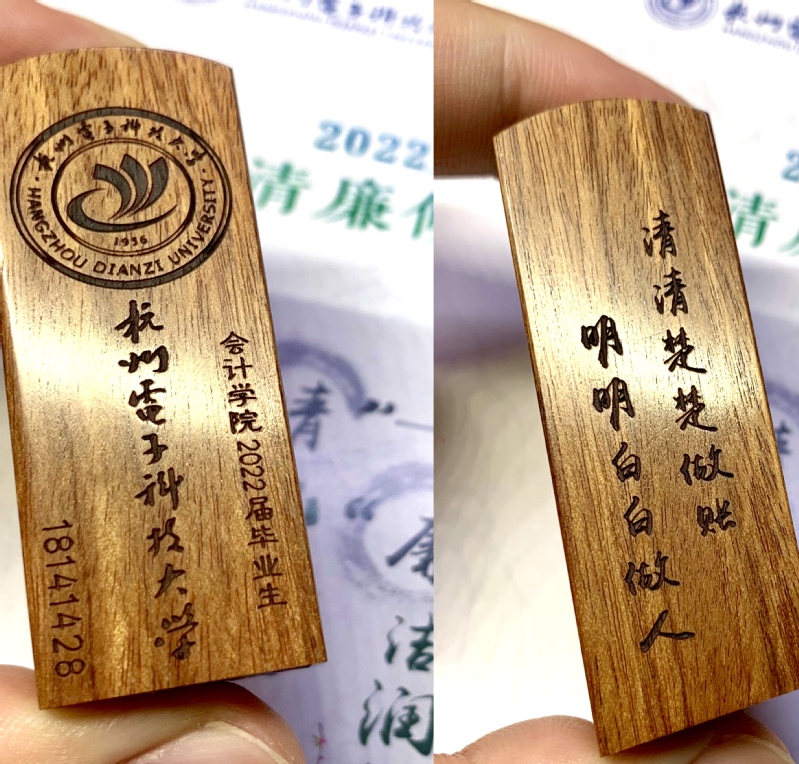 杭州电子科技大学
HANGZHOU DIANZI UNIVERSITY
1956
杭州電子科技大学
会计学院2022届毕业生
18141428
2022
清廉
清
洁
润
清清楚楚做账
明明白白做人
清